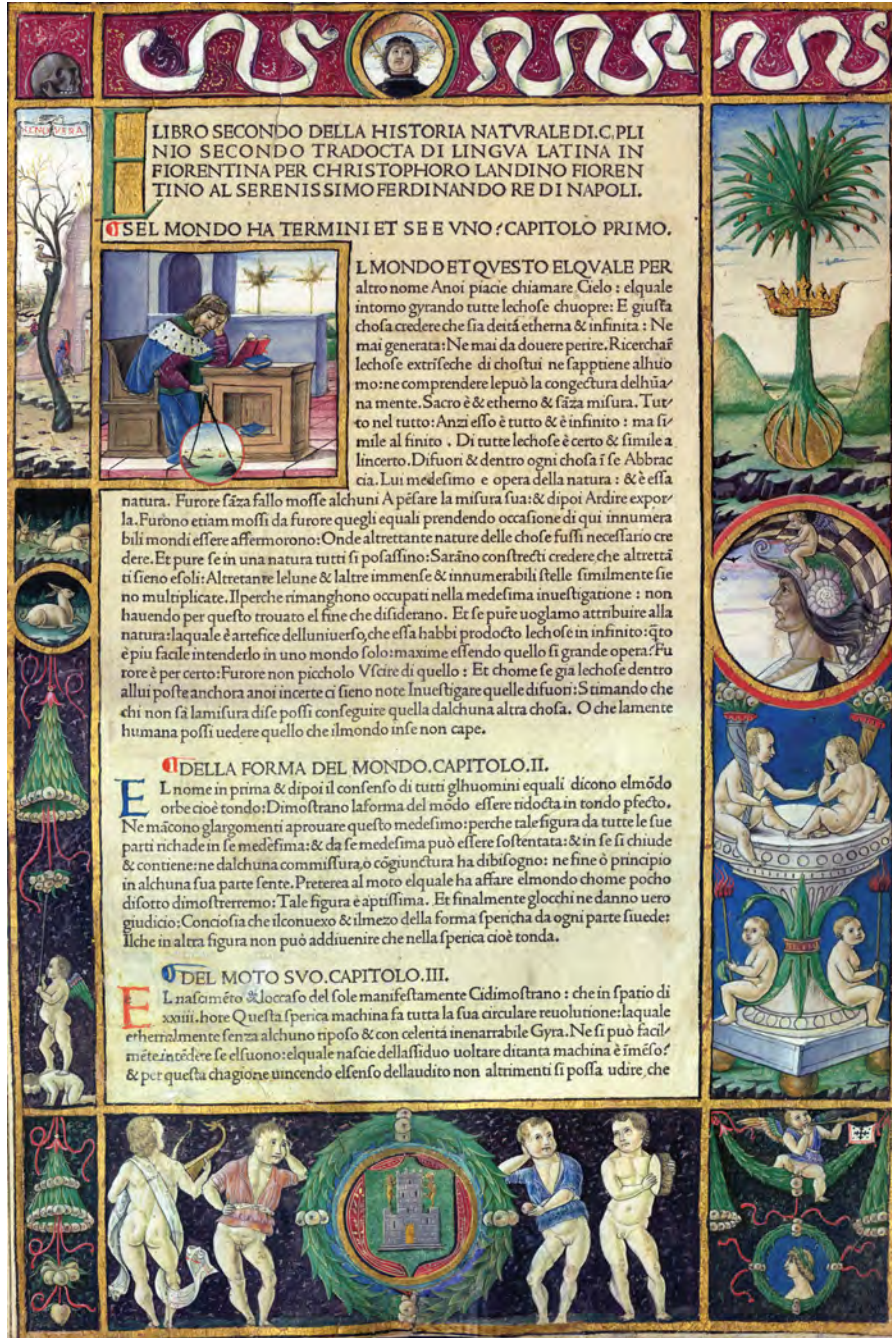 ELIBRO SECONDO DELLA HISTORIA NATVRALE DI.C.PLI
NIO SECONDO TRADOCTA DI LINGVA LATINA IN
FIORENTINA PER CHRISTOPHORO LANDINO FIOREN
TINO AL SERENISSIMO FERDINANDO RE DI NAPOLI.
¶SEL MONDO HA TERMINI ET SE E VNO? CAPITOLO PRIMO.
L MONDO ET QVESTO ELQVALE PER
altro nome Anoi piacie chiamare Cielo : elquale
intorno gyrando tutte lechoſe chuopre: E giuſta
choſa credere che ſia deitá etherna & infinita : Ne
mai generata: Ne mai da douere perire. Ricerchar̄
lechoſe extriſeche di choſtui ne ſapptiene alhuo
mo: ne comprendere lepuò la congectura delhūa/
na mente. Sacro è & etherno & ſāza miſura. Tut/
to nel tutto: Anzi eſſo è tutto & è infinito : ma ſi/
mile al finito . Di tutte lechoſe è certo & ſimile a
lincerto. Difuori & dentro ogni choſa ī ſe Abbrac
cia. Lui medeſimo e opera della natura : & è eſſa
natura. Furore ſāza fallo moſſe alchuni A pēſare la miſura ſua: & dipoi Ardire expor/
la. Furono etiam moſſi da furore quegli equali prendendo occaſione di qui innumera
bili mondi eſſere affermorono: Onde altrettante nature delle choſe fuſſi neceſſario cre
dere. Et pure ſe in una natura tutti ſi poſaſſino: Sarāno conſtrecti credere che altrettā
ti ſieno eſoli: Altretante lelune & laltre immenſe & innumerabili ſtelle ſimilmente ſie
no multiplicate. Ilperche rimanghono occupati nella medeſima inueſtigatione : non
hauendo per queſto trouato el fine che diſiderano. Et ſe pure uoglamo attribuire alla
natura: laquale è artefice delluniuerſo, che eſſa habbi prodocto lechoſe in infinito: q̄to
è piu facile intenderlo in uno mondo ſolo: maxime eſſendo quello ſi grande opera? Fu
rore è per certo: Furore non piccholo Vſcire di quello : Et chome ſe gia lechoſe dentro
allui poſte anchora anoi incerte ci ſieno note Inueſtigare quelle difuori: Stimando che
chi non ſà lamiſura diſe poſſi conſeguire quella dalchuna altra choſa. O che lamente
humana poſſi uedere quello che ilmondo inſe non cape.
¶DELLA FORMA DEL MONDO. CAPITOLO. II.
EL nome in prima & dipoi il conſenſo di tutti glhuomini equali dicono elmōdo
orbe cioè tondo: Dimoſtrano laforma del mōdo eſſere ridocta in tondo pfecto.
Ne mācono glargomenti aprouare queſto medeſimo: perche tale figura da tutte le ſue
parti richade in ſe medeſima: & da ſe medeſima può eſſere ſoſtentata: & in ſe ſi chiude
& contiene: ne dalchuna commiſſura, o cōgiunctura ha dibiſogno: ne fine ò principio
in alchuna ſua parte ſente. Preterea al moto elquale ha affare elmondo chome pocho
diſotto dimoſtrerremo: Tale figura è aptiſſima. Et finalmente glocchi ne danno uero
giudicio: Concioſia che ilconuexo & ilmezo della forma ſpericha da ogni parte ſiuede:
Ilche in altra figura non può addiuenire che nella ſperica cioè tonda.
¶DEL MOTO SVO. CAPITOLO. III.
EL naſcimēto & loccaſo del ſole manifeſtamente Cidimoſtrano : che in ſpatio di
xxiiii. hore Queſta ſperica machina fa tutta la ſua circulare reuolutione: laquale
etherralmente ſenza alchuno ripoſo & con celeritá inenarrabile Gyra. Ne ſi può facil/
mēte intēdere ſe elſuono: elquale naſcie dellaſſiduo uoltare ditanta machina è īmēſo?
& per queſta chagione uincendo elſenſo dellaudito non altrimenti ſi poſſa udire, che